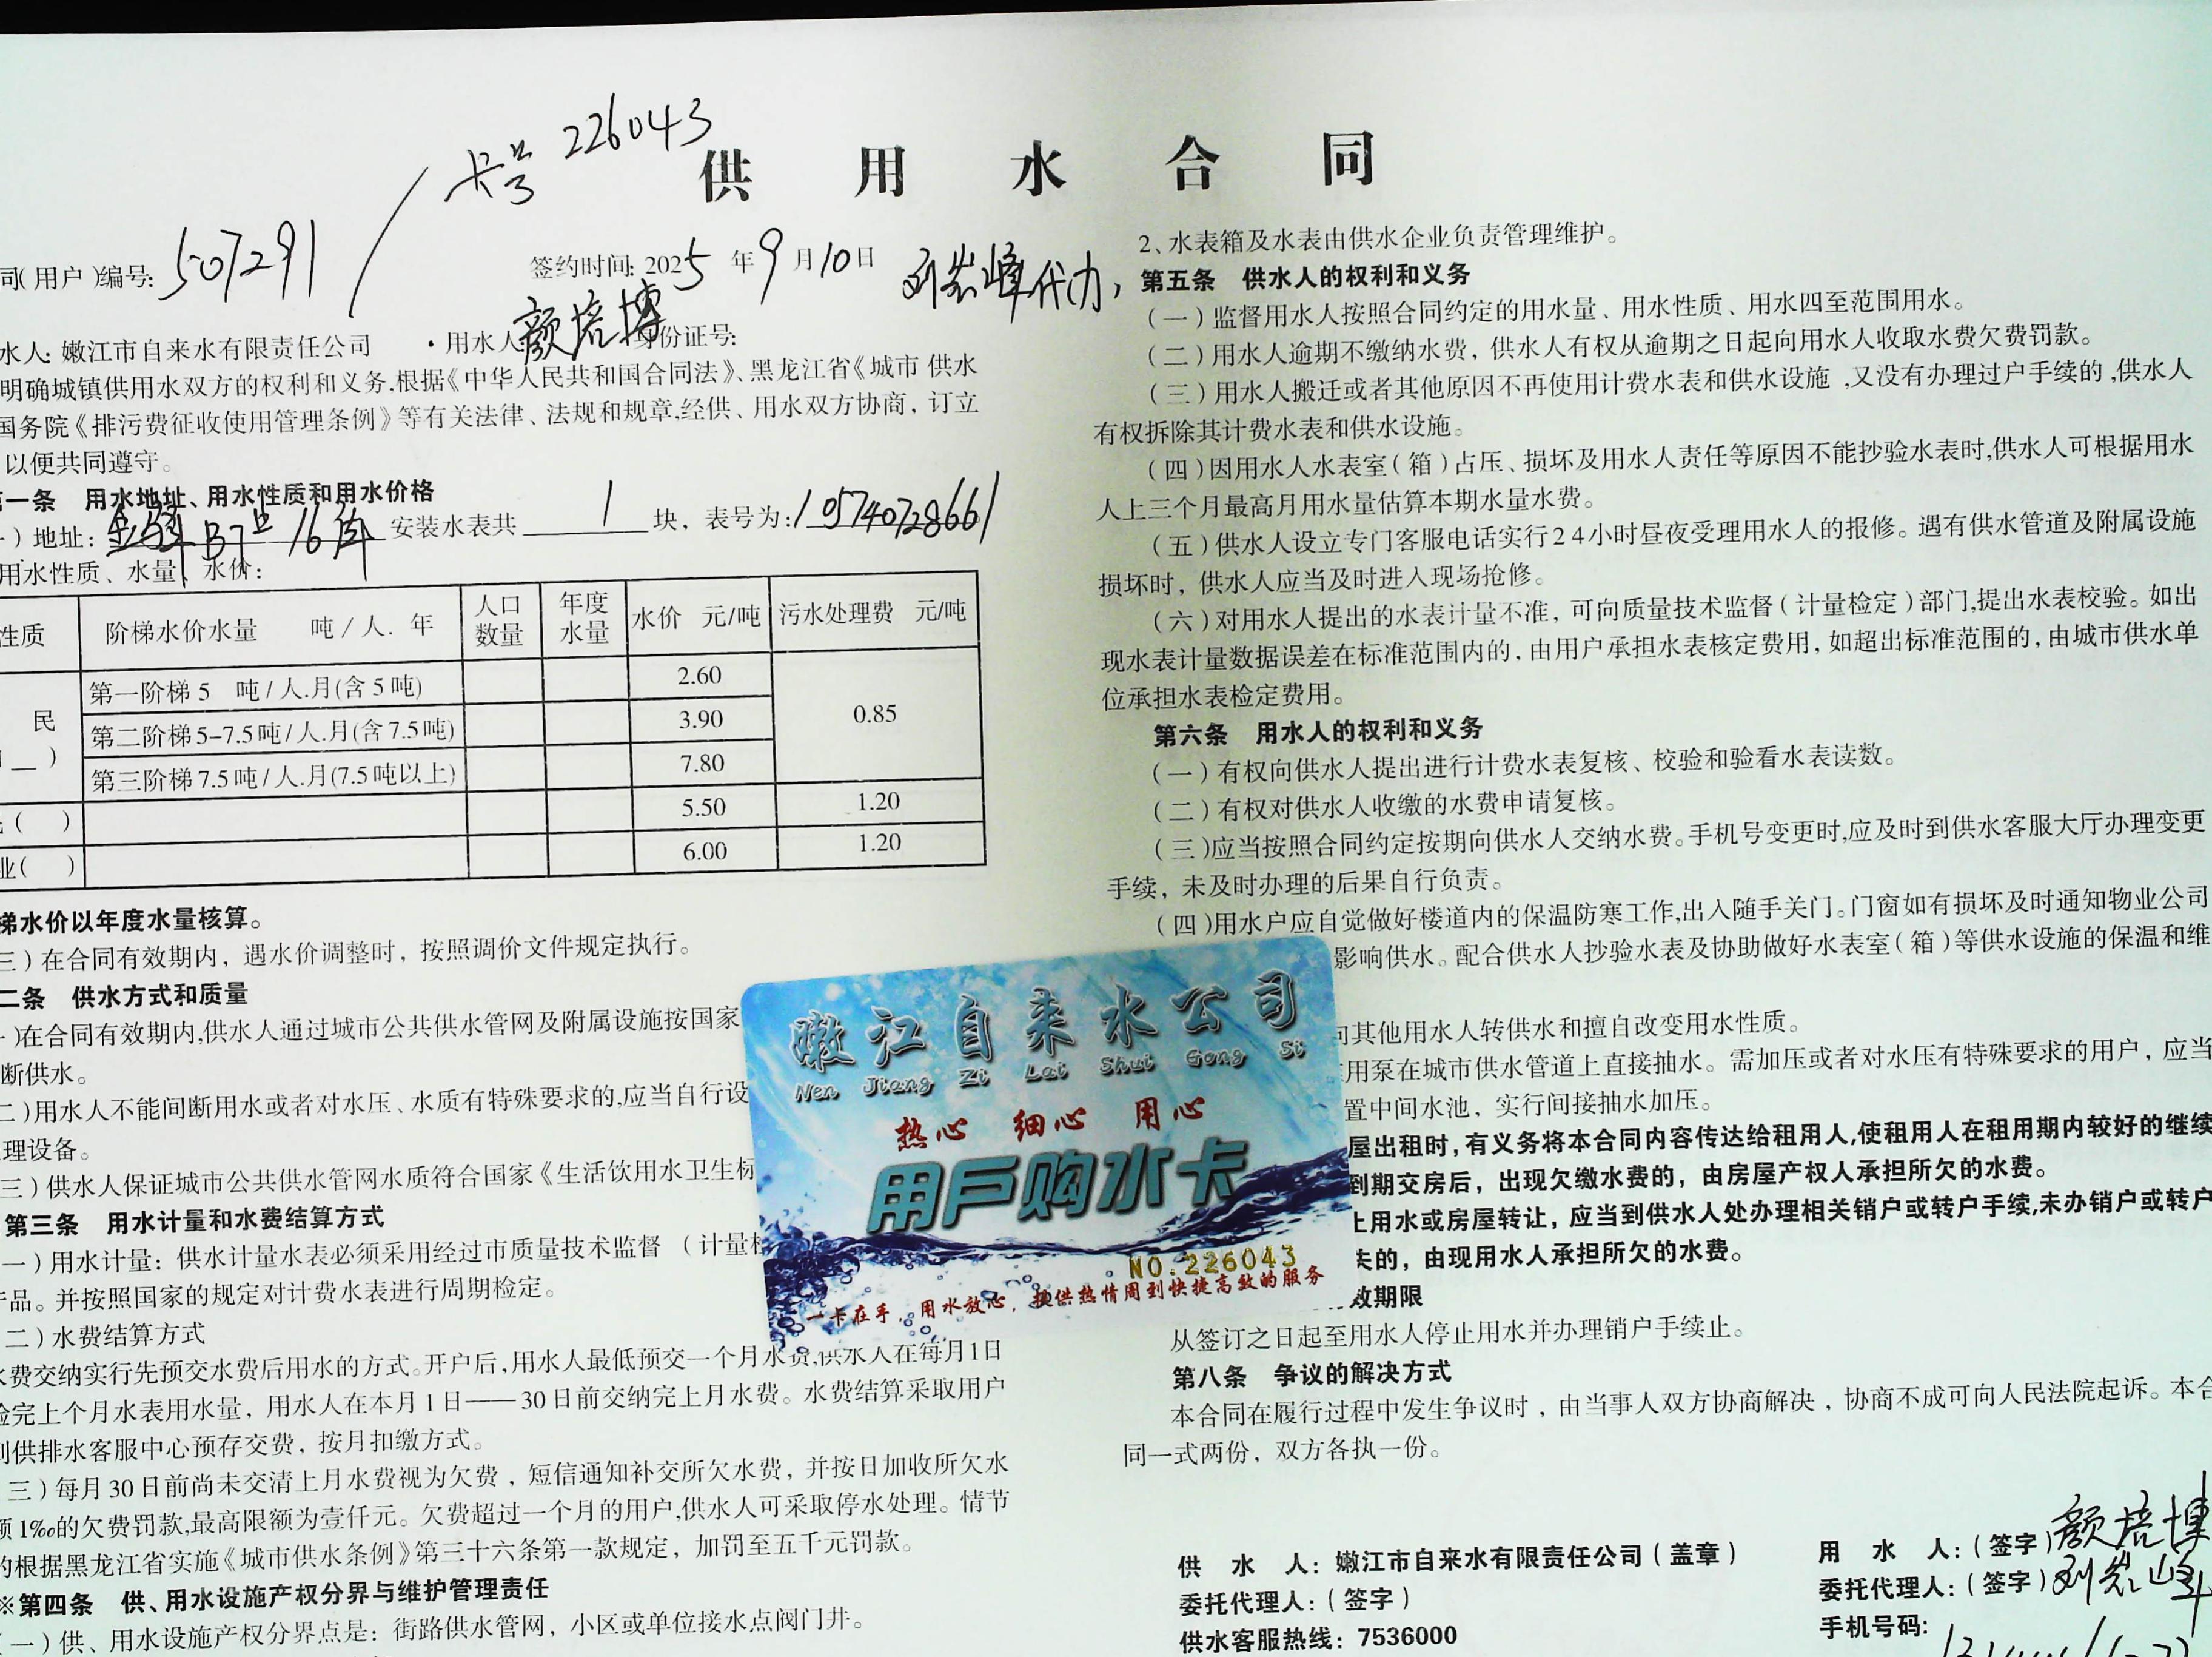 卡号 226043
供用水合同
同(用户)编号: 507291
签约时间: 2025年9月10日 刘岩峰代办,
水人: 嫩江市自来水有限责任公司 ·用水人 颜培博 身份证号:
明确城镇供用水双方的权利和义务,根据《中华人民共和国合同法》、黑龙江省《城市 供水
国务院《排污费征收使用管理条例》等有关法律、法规和规章,经供、用水双方协商,订立
以便共同遵守。
第一条 用水地址、用水性质和用水价格
一)地址: B7 16 安装水表共 1 块,表号为: 105740728661
用水性质、水量、水价:
性质 阶梯水价水量 吨/人.年 人口数量 年度水量 水价 元/吨 污水处理费 元/吨
民
第一阶梯 5 吨/人.月(含 5 吨) 2.60
第二阶梯 5-7.5 吨/人.月(含 7.5 吨) 3.90 0.85
第三阶梯 7.5 吨/人.月(7.5 吨以上) 7.80
( ) 5.50 1.20
业( ) 6.00 1.20
梯水价以年度水量核算。
三)在合同有效期内,遇水价调整时,按照调价文件规定执行。
二条 供水方式和质量
一)在合同有效期内,供水人通过城市公共供水管网及附属设施按国家
断供水。
二)用水人不能间断用水或者对水压、水质有特殊要求的,应当自行设
理设备。
三)供水人保证城市公共供水管网水质符合国家《生活饮用水卫生标
第三条 用水计量和水费结算方式
一)用水计量:供水计量水表必须采用经过市质量技术监督(计量检
产品。并按照国家的规定对计费水表进行周期检定。
二)水费结算方式
水费交纳实行先预交水费后用水的方式。开户后,用水人最低预交一个月水费,供水人在每月1日
验完上个月水表用水量,用水人在本月1日——30日前交纳完上月水费。水费结算采取用户
到供排水客服中心预存交费,按月扣缴方式。
三)每月30日前尚未交清上月水费视为欠费,短信通知补交所欠水费,并按日加收所欠水
额1‰的欠费罚款,最高限额为壹仟元。欠费超过一个月的用户,供水人可采取停水处理。情节
的根据黑龙江省实施《城市供水条例》第三十六条第一款规定,加罚至五千元罚款。
※第四条 供、用水设施产权分界与维护管理责任
(一)供、用水设施产权分界点是:街路供水管网,小区或单位接水点阀门井。
2、水表箱及水表由供水企业负责管理维护。
第五条 供水人的权利和义务
(一)监督用水人按照合同约定的用水量、用水性质、用水四至范围用水。
(二)用水人逾期不缴纳水费,供水人有权从逾期之日起向用水人收取水费欠费罚款。
(三)用水人搬迁或者其他原因不再使用计费水表和供水设施,又没有办理过户手续的,供水人
有权拆除其计费水表和供水设施。
(四)因用水人水表室(箱)占压、损坏及用水人责任等原因不能抄验水表时,供水人可根据用水
人上三个月最高月用水量估算本期水量水费。
(五)供水人设立专门客服电话实行24小时昼夜受理用水人的报修。遇有供水管道及附属设施
损坏时,供水人应当及时进入现场抢修。
(六)对用水人提出的水表计量不准,可向质量技术监督(计量检定)部门,提出水表校验。如出
现水表计量数据误差在标准范围内的,由用户承担水表核定费用,如超出标准范围的,由城市供水单
位承担水表检定费用。
第六条 用水人的权利和义务
(一)有权向供水人提出进行计费水表复核、校验和验看水表读数。
(二)有权对供水人收缴的水费申请复核。
(三)应当按照合同约定按期向供水人交纳水费。手机号变更时,应及时到供水客服大厅办理变更
手续,未及时办理的后果自行负责。
(四)用水户应自觉做好楼道内的保温防寒工作,出入随手关门。门窗如有损坏及时通知物业公司
影响供水。配合供水人抄验水表及协助做好水表室(箱)等供水设施的保温和维
向其他用水人转供水和擅自改变用水性质。
用泵在城市供水管道上直接抽水。需加压或者对水压有特殊要求的用户,应当
置中间水池,实行间接抽水加压。
屋出租时,有义务将本合同内容传达给租用人,使租用人在租用期内较好的继续
到期交房后,出现欠缴水费的,由房屋产权人承担所欠的水费。
上用水或房屋转让,应当到供水人处办理相关销户或转户手续,未办销户或转户
失的,由现用水人承担所欠的水费。
效期限
从签订之日起至用水人停止用水并办理销户手续止。
第八条 争议的解决方式
本合同在履行过程中发生争议时,由当事人双方协商解决,协商不成可向人民法院起诉。本合
同一式两份,双方各执一份。
供 水 人:嫩江市自来水有限责任公司(盖章)
委托代理人:(签字)
供水客服热线:7536000
用 水 人:(签字)颜培博
委托代理人:(签字)刘岩峰
手机号码:
嫩江自来水公司
Nen Jiang Zi Lai Shui Gong Si
热心 细心 用心
用户购水卡
NO.226043
一卡在手,用水放心,提供热情周到快捷高效的服务